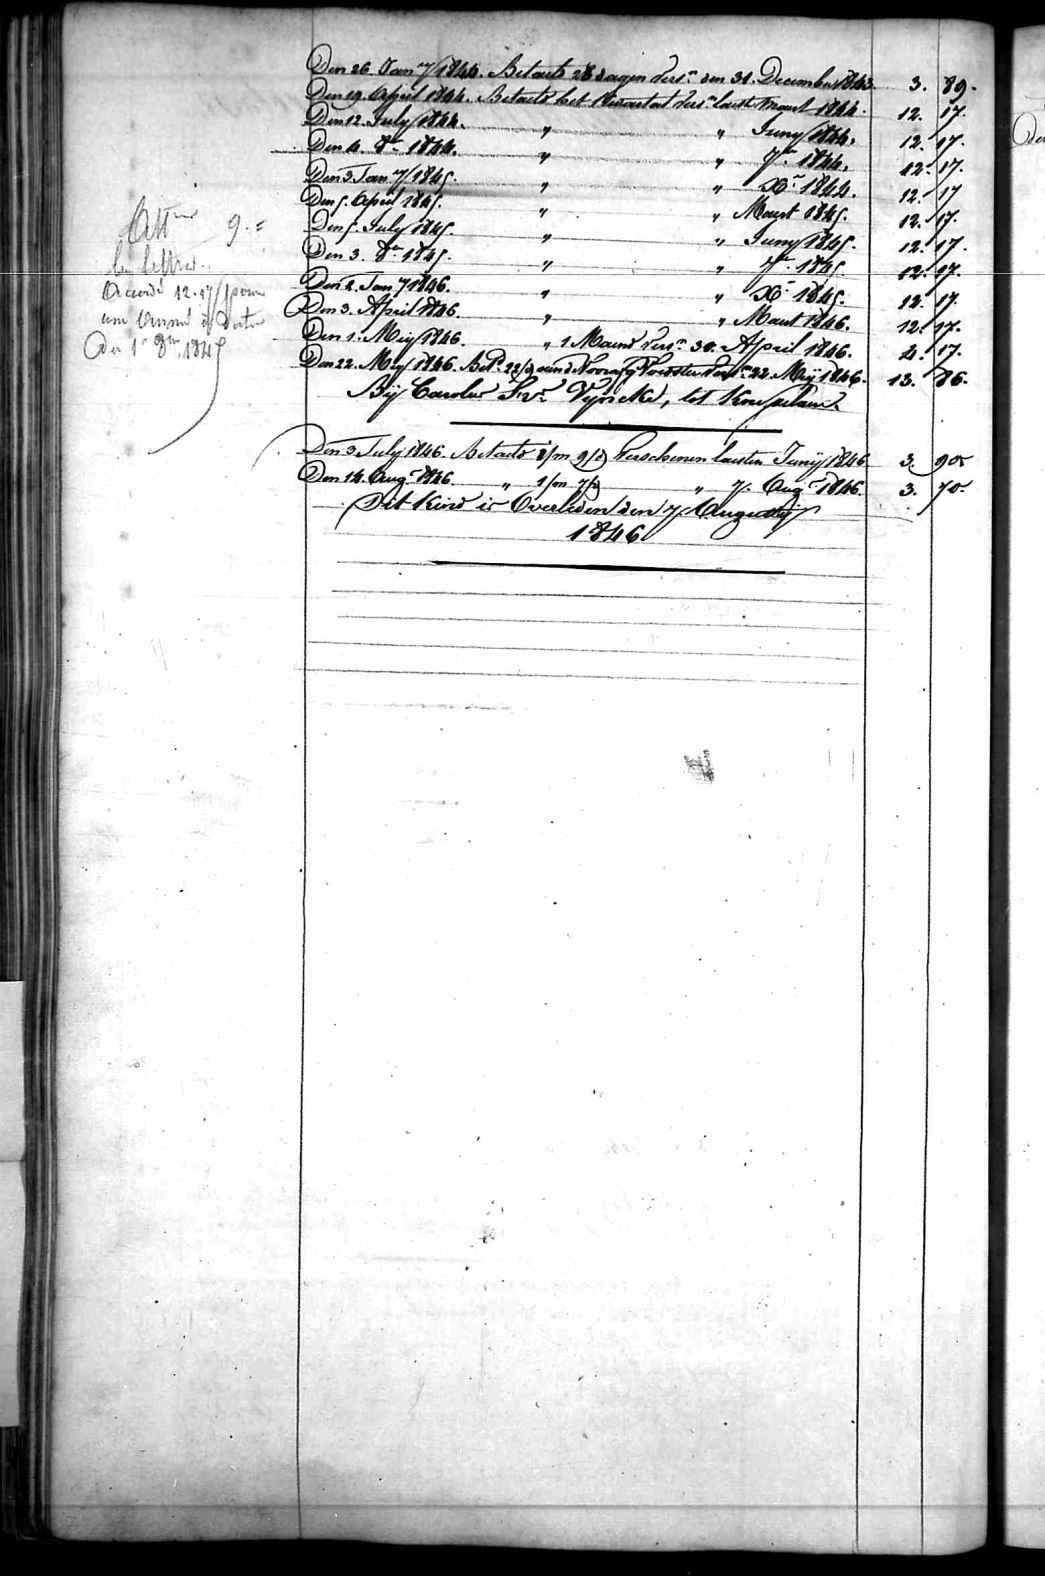 Den 26. Jan.y 1844. Betaelt 28 dagen vers.n den 31. December 1843. 3. 89.
Den 19. April 1844. Betaelt het Kwartal vers.n laest Maart 1844. 12. 17.
Den 12. July 1844. " " Juny 1844. 12. 17.
Den 4. 8.r 1844. " " 7.r 1844. 12. 17.
Den 3. Jan.y 1845. " " X.r 1844. 12. 17
Den 5. April 1845. " " Maart 1845. 12. 17.
Den 5. July 1845. " " Juny 1845. 12. 17.
Den 3. 8.r 1845. " " 7.r 1845. 12. 17.
Den 2. Jan.y 1846. " " X.r 1845. 12. 17.
Den 3. April 1846. " " Maart 1846. 12. 17.
Den 1. Meij 1846. " 1 Maend vers.n 30. April 1846. 4. 17.
Den 22. Meij 1846. Bet.d 22/d vers.n 22. Meij 1846. 13. 86.
Bij Carolus
Den 3 July 1846. Betaelt 1/m 9/d Verschenen laesten Junij 1846 3. 90
Den 14. Aug.t 1846. " 1/m 7/d " 7. Aug.t 1846. 3. 70.
Dit Kind is Overleden den 7. Augustij
1846
Att 9.=
la lettre
Accordé 12.17 pour
une année à dater
Du 1.r 8.re 1845